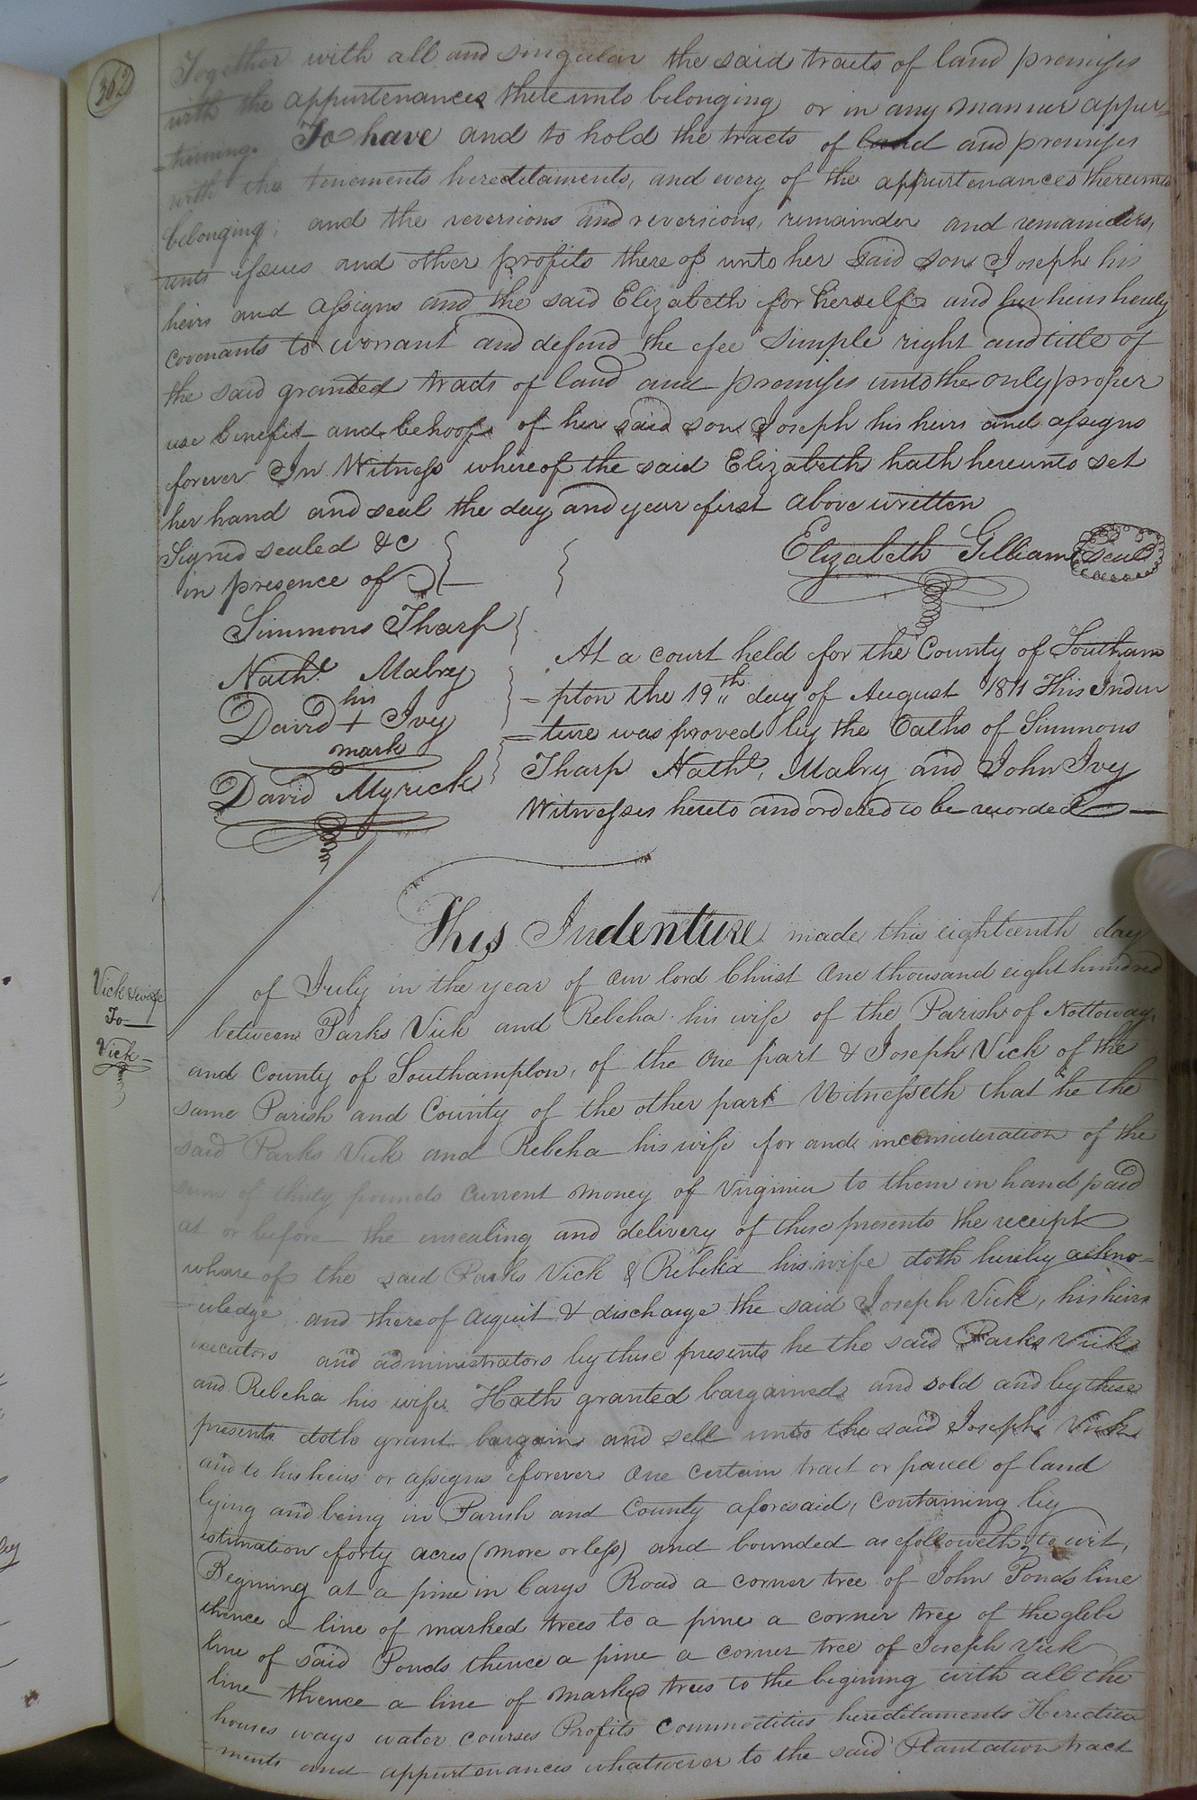 362
Together with all and singular the said tracts of land premises
with the appurtenances thereunto belonging or in any manner apper-
-taining. To have and to hold the tracts of land and premises
with the tenements hereditaments, and every of the appurtenances thereunto
belonging; and the reversions and reversions, remainder and remainders,
unts issues and other profits there of unto her said son Joseph his
heirs and assigns and the said Elizabeth for herself and her heirs hereby
covenants to worrant and defend the fee simple right and title of
the said granted tracts of land and premises unto the only proper
use benefit and behoof of her said son Joseph his heirs and assigns
forever In Witness whereof the said Elizabeth hath hereunto set
her hand and seal the day and year first above written
Signed sealed &c
in presence of
Elizabeth Gilliam seal
Simmons Tharp
Nathl Mabry
his
David + Ivy
mark
David Myrick
At a court held for the County of Southam
=pton the 19th day of August 1811 This Inden
=ture was proved by the Oaths of Simmons
Tharp Nathl, Mabry and John Ivy
Witnesses hereto and ordered to be recorded
Vick & wife
To
Vick
This Indenture made this eighteenth day
of July in the year of our lord Christ One thousand eight hundred
between Parks Vick and Rebeha his wife of the Parish of Nottoway
and County of Southampton, of the One part & Joseph Vick of the
same Parish and County of the other part Witnesseth that he the
said Parks Vick and Rebeha his wife for and inconsideration of the
sum of thirty pounds Current money of Virginia to them in hand paid
at or before the ensealing and delivery of these presents the receipt
whare of the said Parks Vick & Rebeka his wife doth hereby ackno-
-wledge and thereof acquit & discharge the said Joseph Vick, his heirs
executors and administrators by these presents he the said Parks Vick
and Rebeha his wife Hath granted bargained and sold and by these
presents doth grant bargain and sell unto the said Joseph Vick
and to his heirs or assigns forever One certain tract or parcel of land
lying and being in Parish and County aforesaid, containing by
estimation forty acres (more or less) and bounded as followeth, to wit,
Begning at a pine in Carys Road a corner tree of John Ponds line
thence a line of marked trees to a pine a corner tree of the glebe
line of said Ponds thence a pine a corner tree of Joseph Vick
line thence a line of marked trees to the begining with all the
houses ways water courses Profits commodities hereditaments Heredita
=ments and appurtenances whatsoever to the said Plantation tract